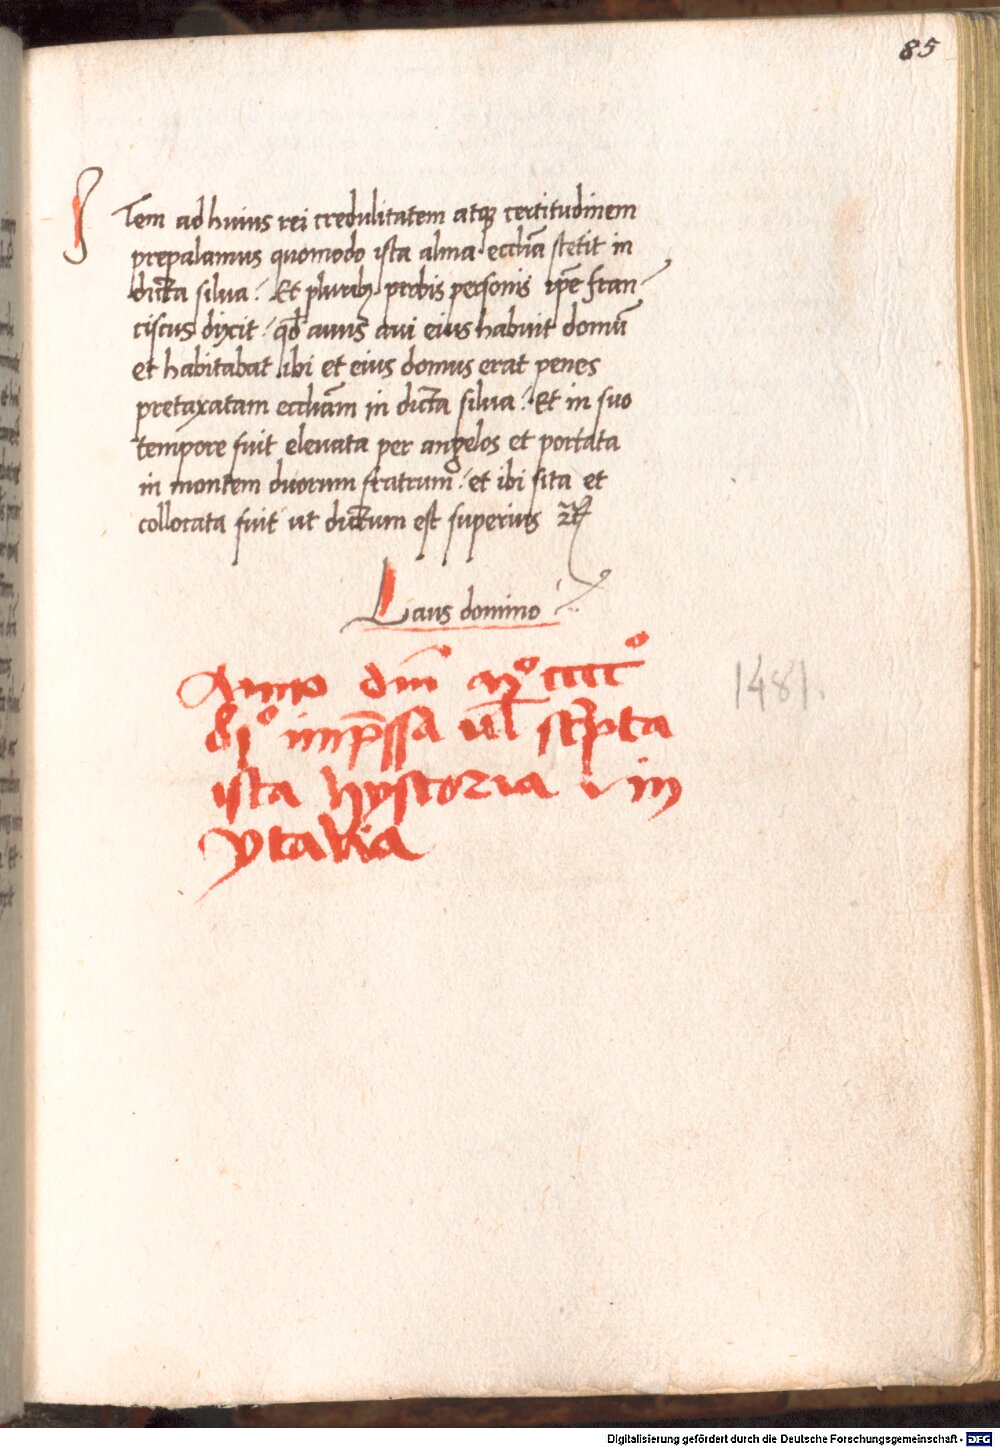 85
Item ad huius rei credulitatem atqꝫ certitudinem
prepalamus quomodo ista alma eccłia stetit in
dicta silua : Et pluribꝫ probis personis ip̄e fran-
ciscus dixit : qđ auus aui eius habuit domū
et habitabat ibi et eius domus erat penes
pretaxatam eccłiam in dicta silua : Et in suo
tempore fuit eleuata per angelos et portata
in montem duorum fratrum : et ibi sita et
collocata fuit ut dictum est superius
Laus domino
Anno dnī Mº ccccº
81º imp̄ssa vel sc̄pta
ista hystoria in
ytalia
1481.
Digitalisierung gefördert durch die Deutsche Forschungsgemeinschaft - DFG